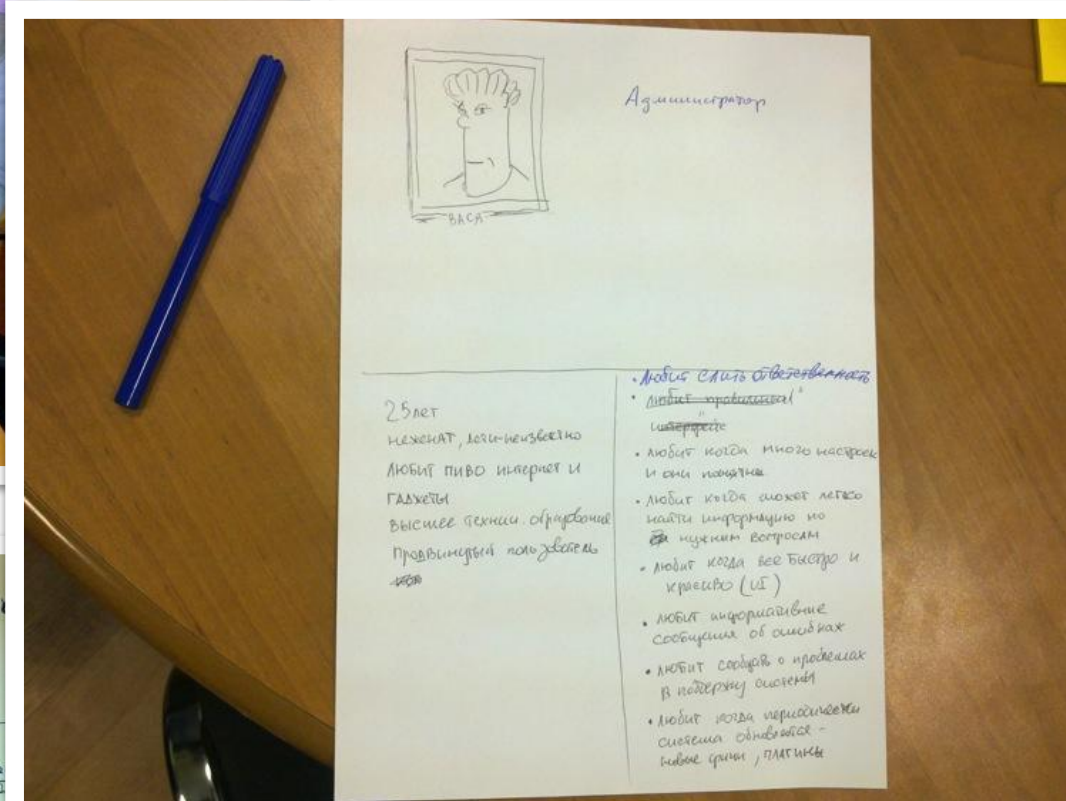 Администратор
ВАСЯ
25 лет
неженат, дети-неизвестно
любит пиво интернет и
гаджеты
высшее технич. образование
продвинутый пользователь
• любит слить ответственность
• любит правильный"
"интерфейс
• любит когда много настроек
и они понятны
• любит когда может легко
найти информацию по
нужным вопросам
• любит когда все быстро и
красиво (UI)
• любит информативные
сообщения об ошибках
• любит сообщать о проблемах
в поддержку системы
• любит когда периодически
система обновляется -
новые фичи, плагины